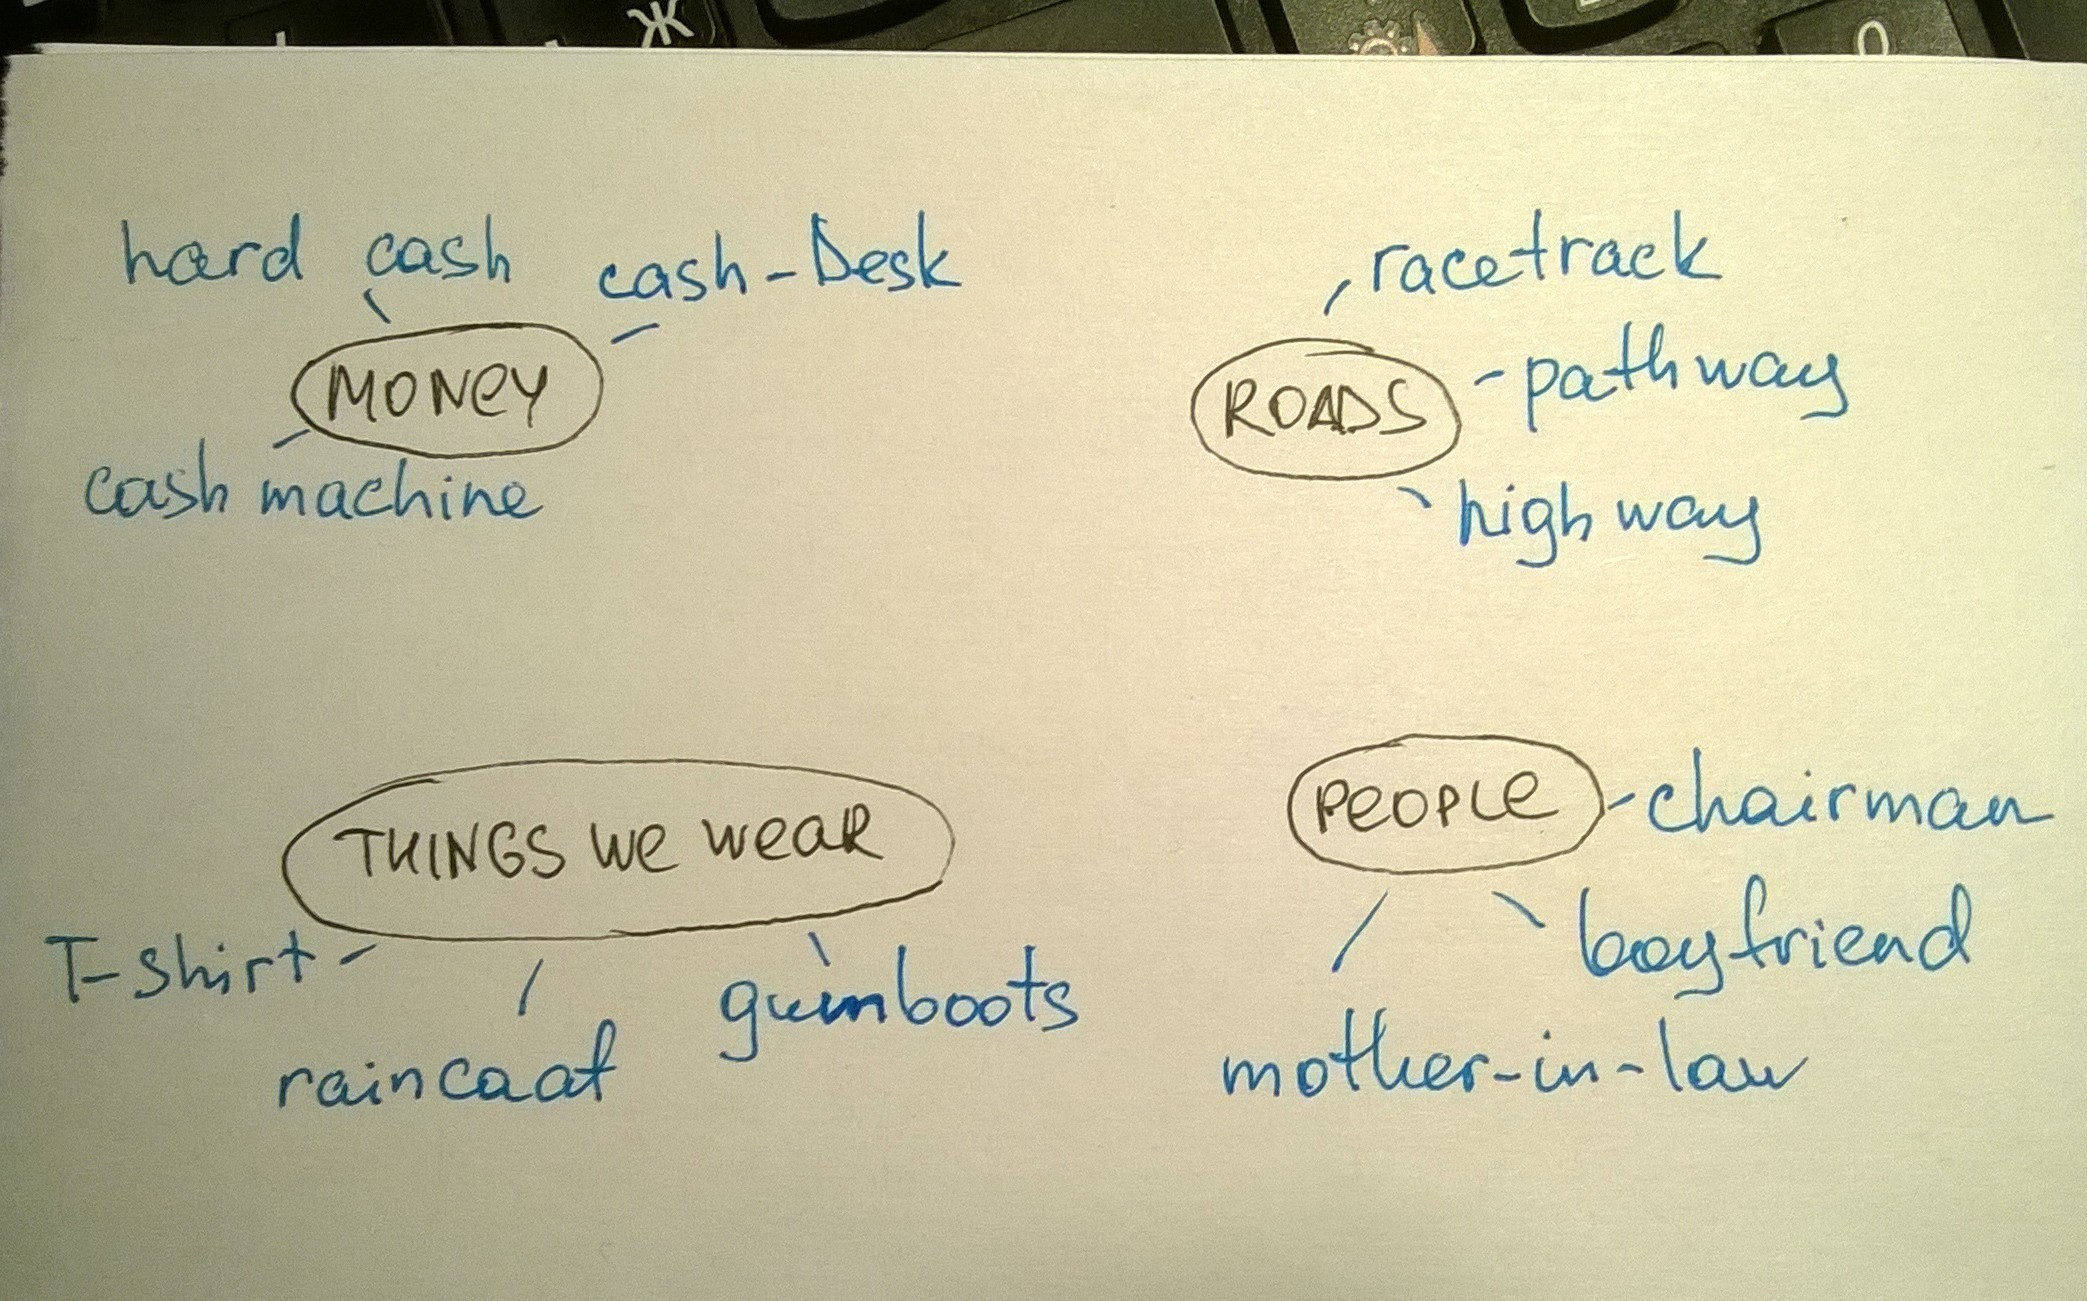 Ж
hard cash
cash-Desk
MONEY
cash machine
racetrack
ROADS
pathway
highway
THINGS WE WEAR
T-shirt
raincoat
gumboots
PEOPLE
chairman
boyfriend
mother-in-law